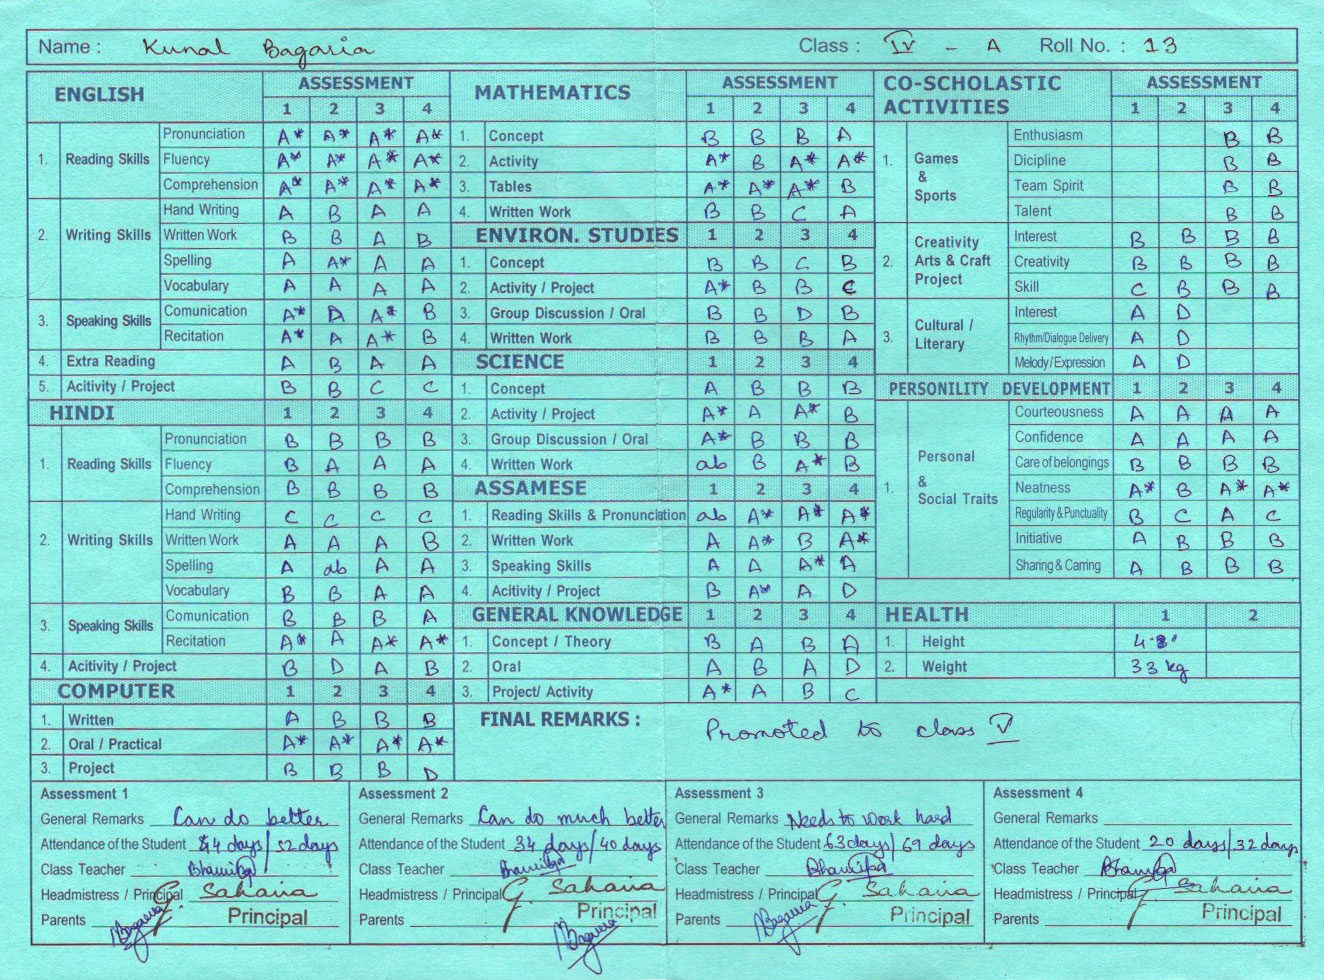 Name : Kunal Bagaria Class : IV - A Roll No. : 13
ENGLISH ASSESSMENT
1 2 3 4
1. Reading Skills Pronunciation A* A* A* A*
Fluency A* A* A* A*
Comprehension A* A* A* A*
2. Writing Skills Hand Writing A B A A
Written Work B B A B
Spelling A A* A A
Vocabulary A A A A
3. Speaking Skills Comunication A* A A* B
Recitation A* A A* B
4. Extra Reading A B A A
5. Acitivity / Project B B C C
HINDI 1 2 3 4
1. Reading Skills Pronunciation B B B B
Fluency B A A A
Comprehension B B B B
2. Writing Skills Hand Writing C C C C
Written Work A A A B
Spelling A ab A A
Vocabulary B B A A
3. Speaking Skills Comunication B B B A
Recitation A* A A* A*
4. Acitivity / Project B D A B
COMPUTER 1 2 3 4
1. Written A B B B
2. Oral / Practical A* A* A* A*
3. Project B B B D
MATHEMATICS ASSESSMENT
1 2 3 4
1. Concept B B B A
2. Activity A* B A* A*
3. Tables A* A* A* B
4. Written Work B B C A
ENVIRON. STUDIES 1 2 3 4
1. Concept B B C B
2. Activity / Project A* B B C
3. Group Discussion / Oral B B D B
4. Written Work B B B A
SCIENCE 1 2 3 4
1. Concept A B B B
2. Activity / Project A* A A* B
3. Group Discussion / Oral A* B B B
4. Written Work ab B A* B
ASSAMESE 1 2 3 4
1. Reading Skills & Pronunciation ab A* A* A*
2. Written Work A A* B A*
3. Speaking Skills A A A* A
4. Acitivity / Project B A* A D
GENERAL KNOWLEDGE 1 2 3 4
1. Concept / Theory B A B A
2. Oral A B A D
3. Project/ Activity A* A B C
FINAL REMARKS : Promoted to class V
CO-SCHOLASTIC ACTIVITIES ASSESSMENT
1 2 3 4
1. Games & Sports Enthusiasm B B
Dicipline B B
Team Spirit B B
Talent B B
2. Creativity Arts & Craft Project Interest B B B B
Creativity B B B B
Skill C B B B
3. Cultural / Literary Interest A D
Rhythm/Dialogue Delivery A D
Melody/Expression A D
PERSONILITY DEVELOPMENT 1 2 3 4
1. Personal & Social Traits Courteousness A A A A
Confidence A A A A
Care of belongings B B B B
Neatness A* B A* A*
Regularity & Punctuality B C A C
Initiative A B B B
Sharing & Carring A B B B
HEALTH 1 2
1. Height
2. Weight 33 kg
Assessment 1
General Remarks Can do better
Attendance of the Student 44 days/52days
Class Teacher
Headmistress / Principal G. Saharia
Principal
Parents Bagaria
Assessment 2
General Remarks Can do much better
Attendance of the Student 34 days/40 days
Class Teacher
Headmistress / Principal G. Saharia
Principal
Parents Bagaria
Assessment 3
General Remarks Needs to work hard
Attendance of the Student 63days/69 days
Class Teacher
Headmistress / Principal G. Saharia
Principal
Parents Bagaria
Assessment 4
General Remarks
Attendance of the Student 20 days/32 days
Class Teacher
Headmistress / Principal G. Saharia
Principal
Parents